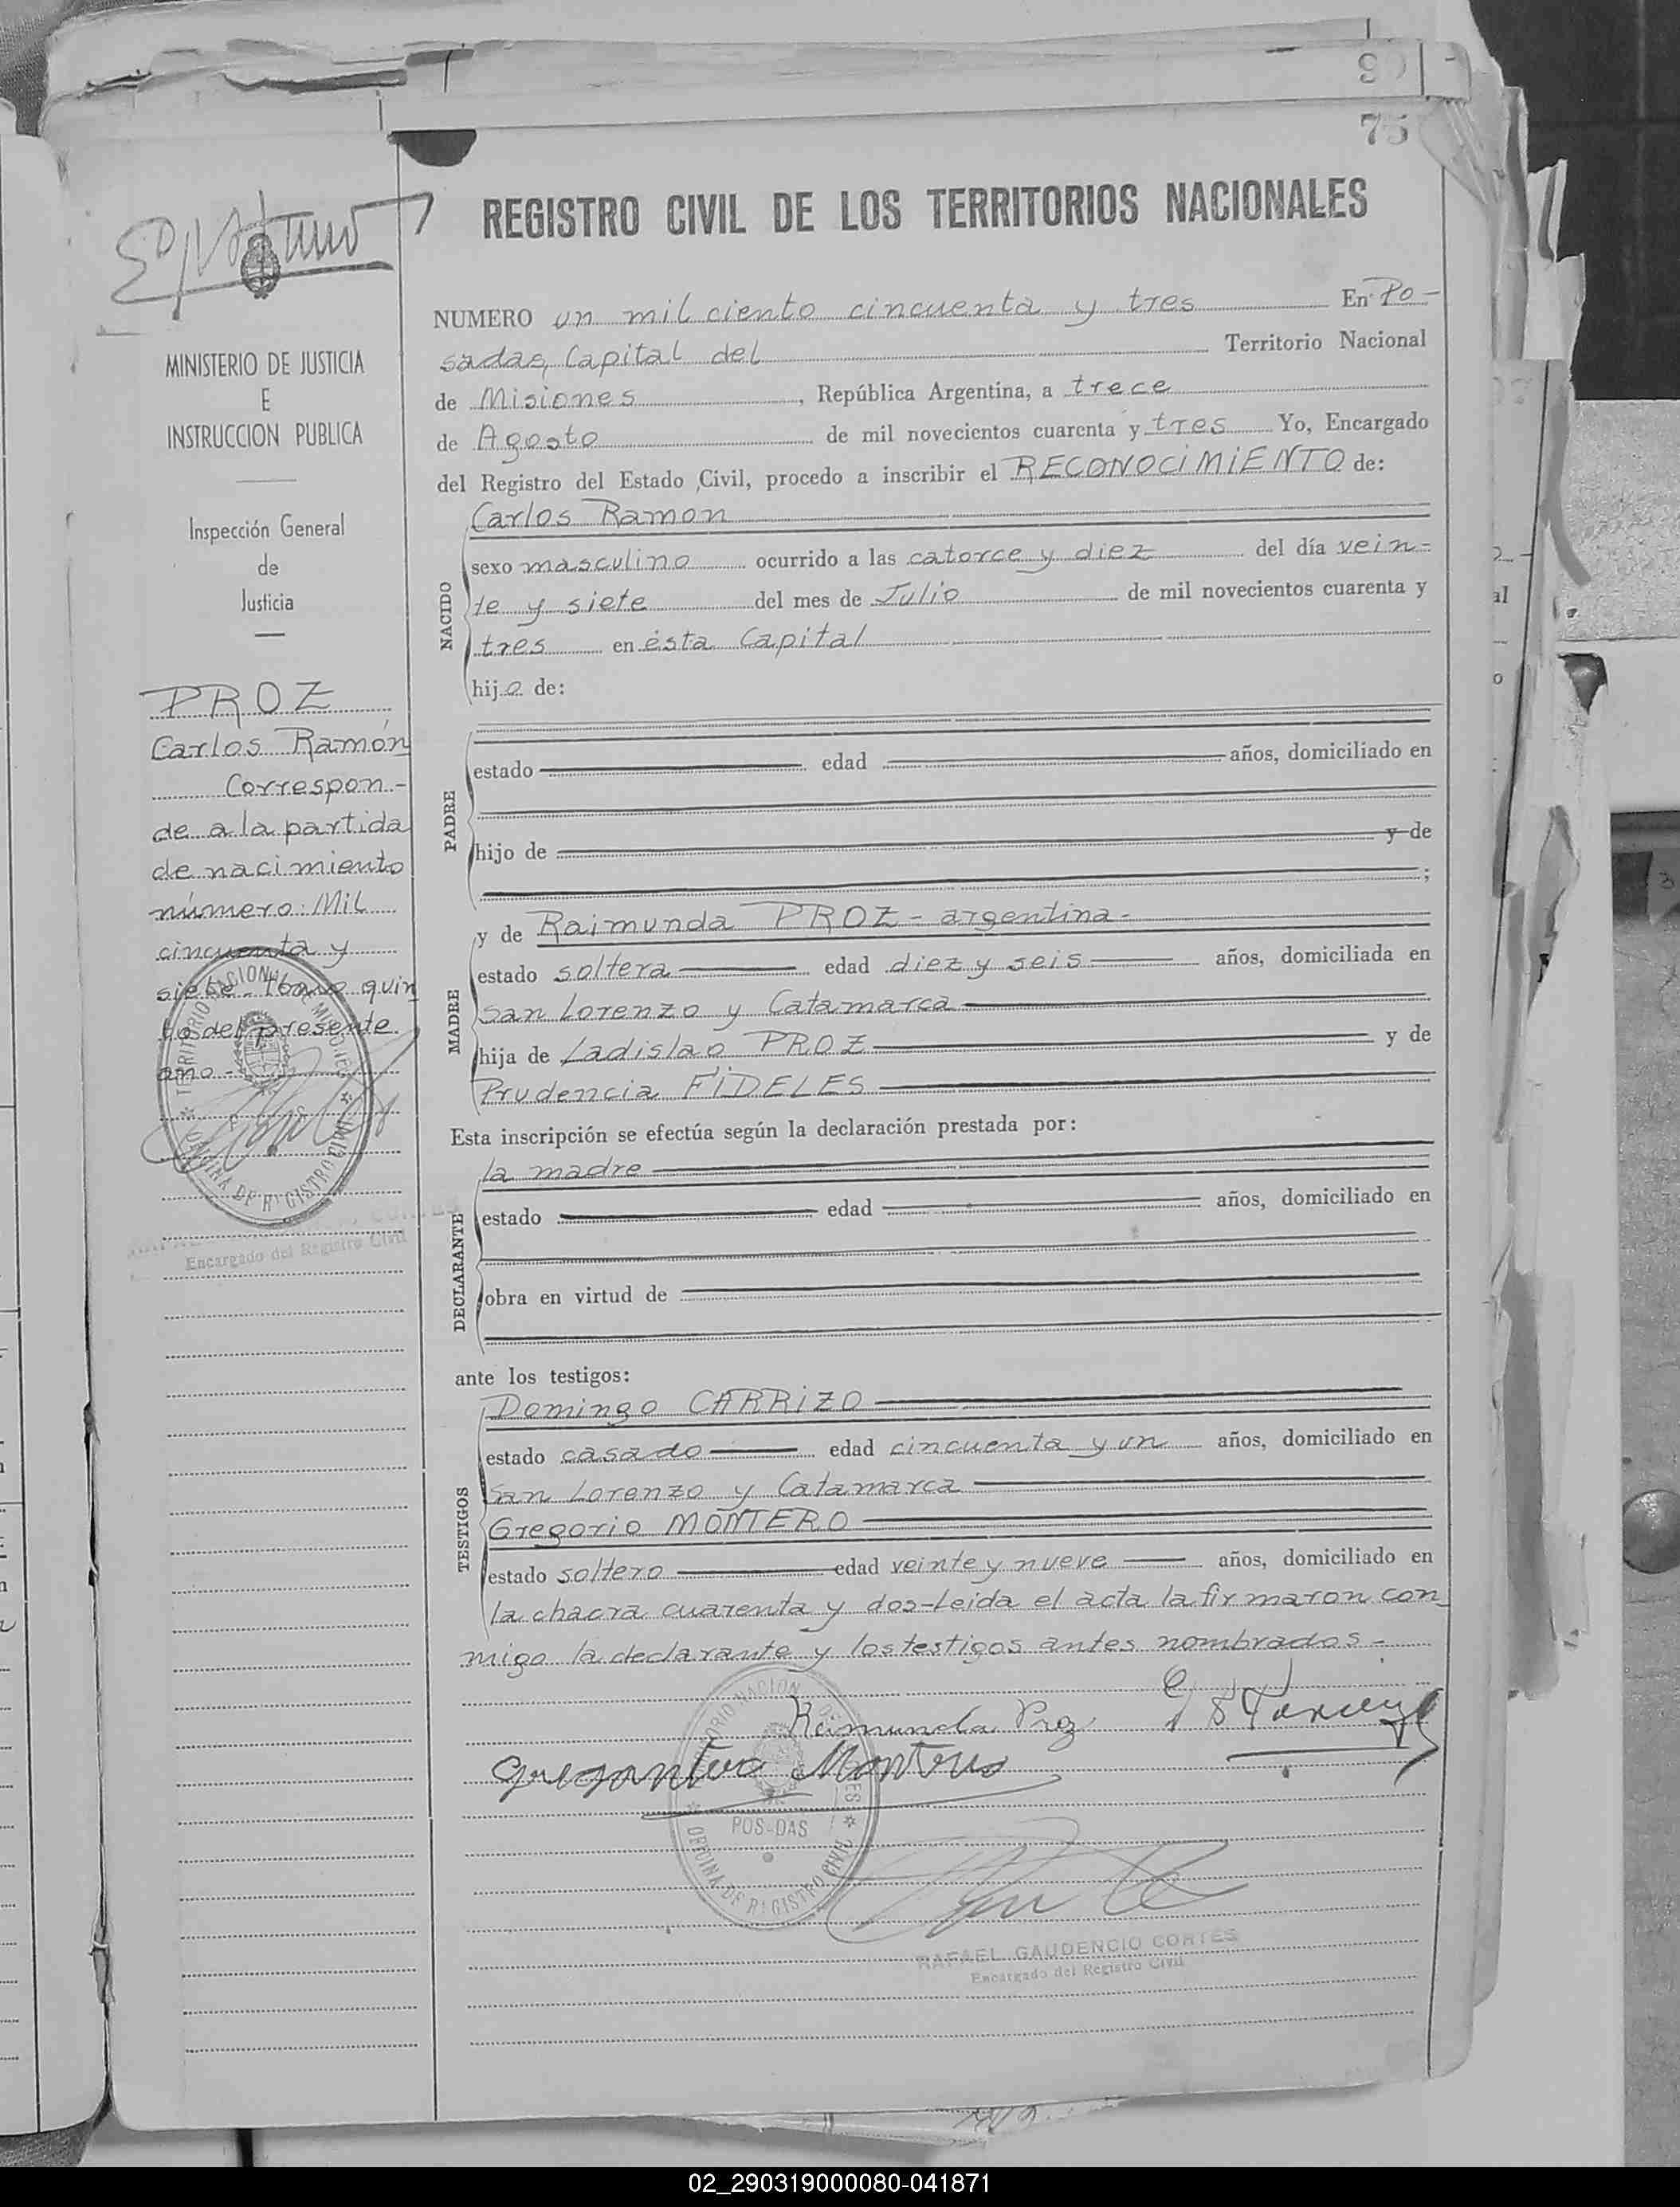 90
75
REGISTRO CIVIL DE LOS TERRITORIOS NACIONALES
MINISTERIO DE JUSTICIA
E
INSTRUCCION PUBLICA
Inspección General
de
Justicia
PROZ
Carlos Ramón
Correspon-
de a la partida
de nacimiento
número: Mil
cincuenta y
siete - tomo quin
to del presente
año -
TERRITORIO NACIONAL DE MISIONES
OFICINA DE REGISTRO CIVIL
Encargado del Registro Civil
NUMERO un mil ciento cincuenta y tres En Po-
sadas, Capital del Territorio Nacional
de Misiones, República Argentina, a trece
de Agosto de mil novecientos cuarenta y tres Yo, Encargado
del Registro del Estado Civil, procedo a inscribir el RECONOCIMIENTO de:
NACIDO
Carlos Ramon
sexo masculino ocurrido a las catorce y diez del día vein-
te y siete del mes de Julio de mil novecientos cuarenta y
tres en ésta Capital
hijo de:
PADRE
estado edad años, domiciliado en
hijo de y de
;
MADRE
y de Raimunda PROZ - argentina -
estado soltera edad diez y seis años, domiciliada en
San Lorenzo y Catamarca
hija de Ladislao PROZ y de
Prudencia FIDELES
Esta inscripción se efectúa según la declaración prestada por:
DECLARANTE
la madre
estado edad años, domiciliado en
obra en virtud de
ante los testigos:
TESTIGOS
Domingo CARRIZO
estado casado edad cincuenta y un años, domiciliado en
San Lorenzo y Catamarca
Gregorio MONTERO
estado soltero edad veinte y nueve años, domiciliado en
la chacra cuarenta y dos - Leida el acta la firmaron con
migo la declarante y los testigos antes nombrados -
Raimunda Proz
Montero
POSADAS
OFICINA DE REGISTRO CIVIL
RAFAEL GAUDENCIO CORTES
Encargado del Registro Civil
02_290319000080-041871